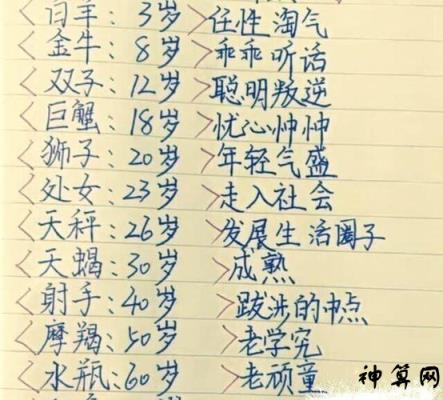 <白羊：3岁>任性淘气
<金牛：8岁>乖乖听话
<双子：12岁>聪明叛逆
<巨蟹：18岁>忧心忡忡
<狮子：20岁>年轻气盛
<处女：23岁>走入社会
<天秤：26岁>发展生活圈子
<天蝎：30岁>成熟
<射手：40岁>跋涉的中点
<摩羯：50岁>老学究
<水瓶：60岁>老顽童
神算网